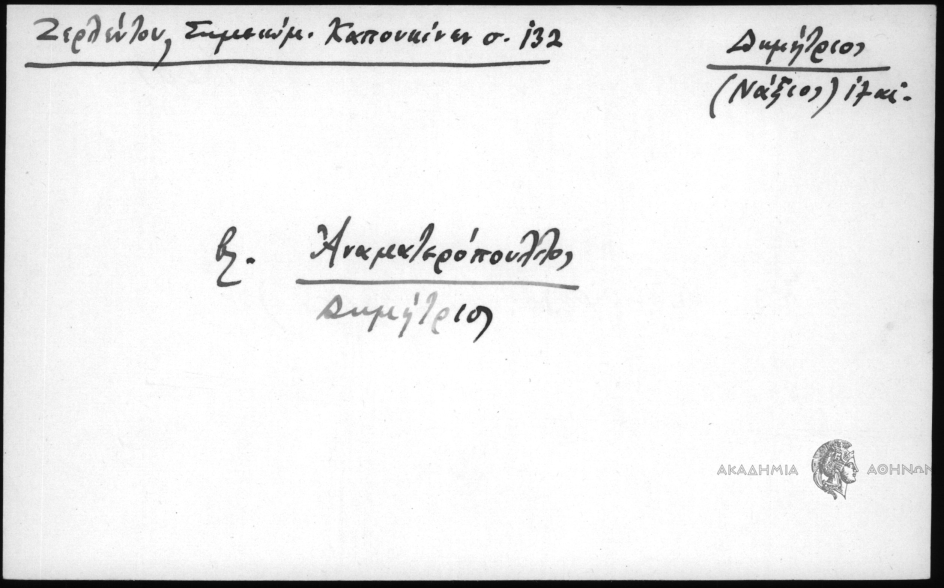 Ζερλέντου, Σημειώμ. Καπουκίνων σ. 132
Δημήτριος
(Νάξιος) 17 αἰ.
βλ. Ἀναματερόπουλλος
Δημήτριος
ΑΚΑΔΗΜΙΑ ΑΘΗΝΩΝ